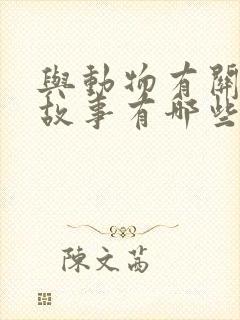 與動物有關
故事有哪些
陳文茜